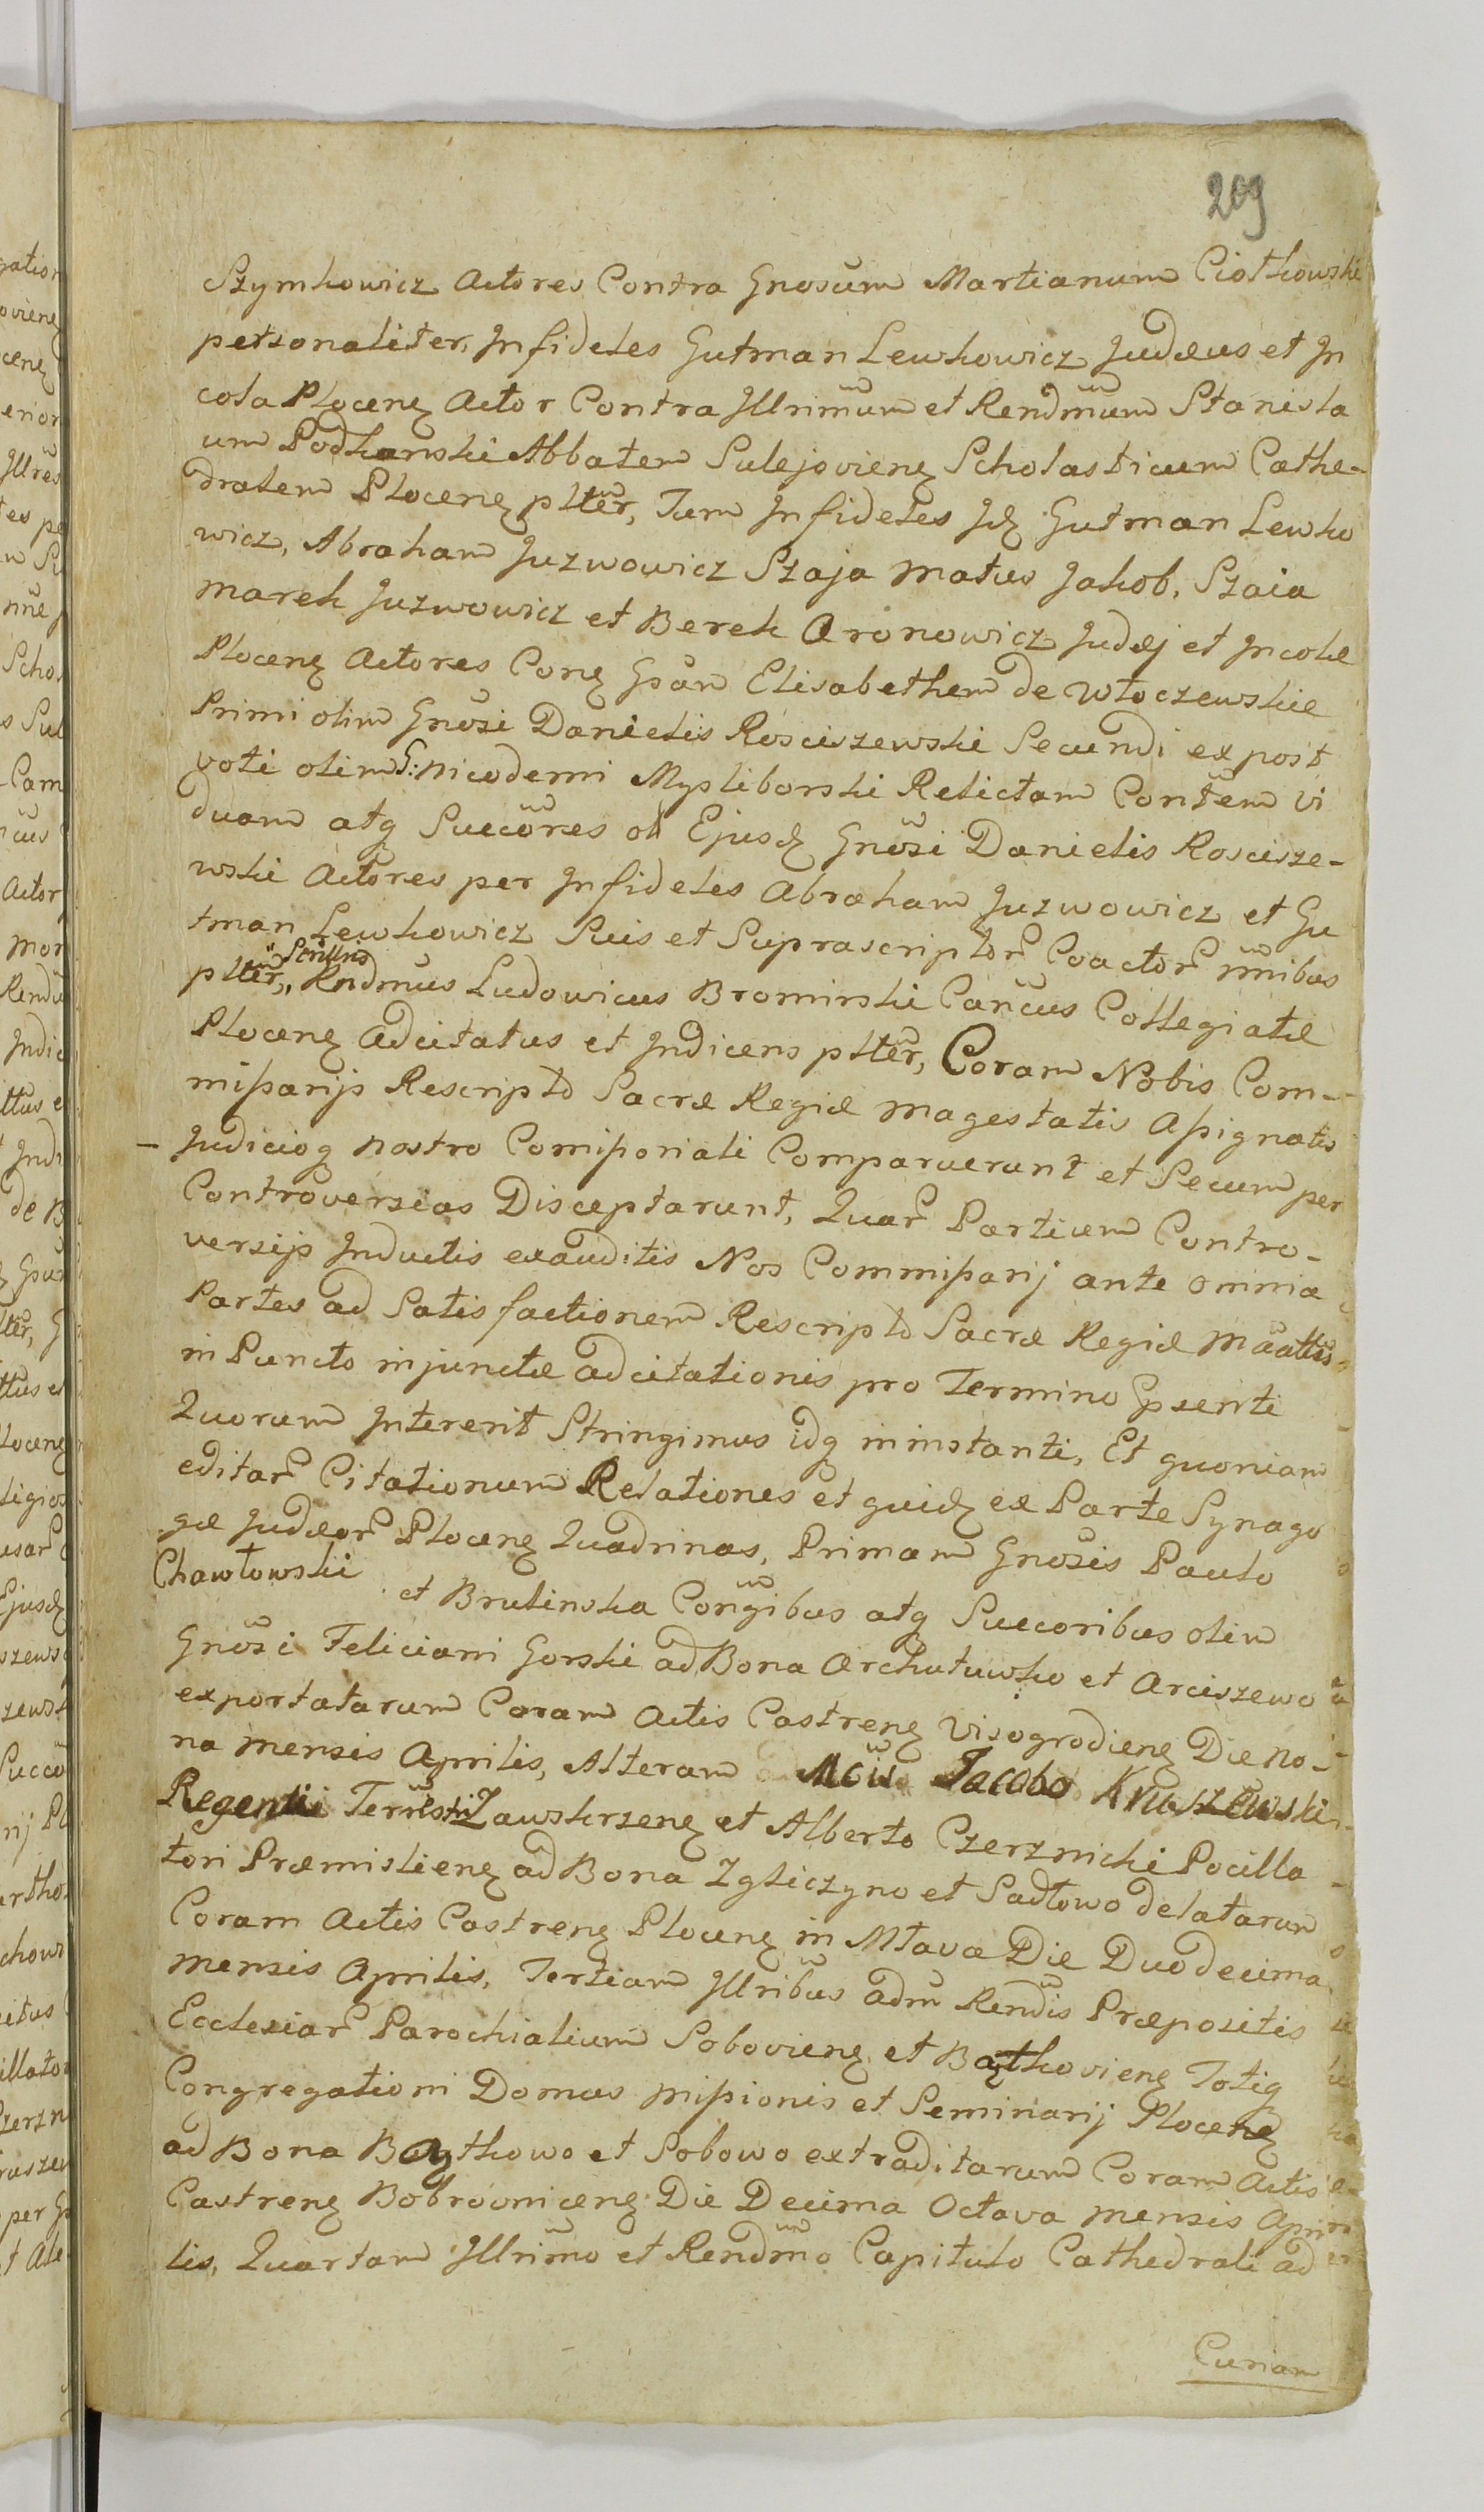 209
Szymkowicz Actores Contra Gnosum Martianum Ciotkowski
personaliter, Infideles Gutman Lewkowicz Judæus et In
cola Plocenẽ Actor Contra Illrimum et Rendmum Stanisla
um Podkanski Abbatem Sulejovienẽ Scholasticum Cathe-
dralem Plocenẽ plter, Tum Infideles Id Gutman Lewko
wicz, Abraham Juzwowicz Szaja Matus Jakob, Szaia
Marek Juzwowicz et Berek Aronowicz Judæj et Incolæ
Plocenẽ Actores Conẽ Gsan Elisabetham de Włoczewskie
Primi olim Gnosi Danielis Rosciszewski Secundi ex post
voti olim G: Nicodemi Mysliborski Relictam Contem Vi
duam atq Succores ol Ejusd Gnosi Danielis Roscisze-
wski Actores per Infideles Abraham Juzwowicz et Gu
tman Lewkowicz Suis et Suprascriptor Coactor nnibus
plter,, Rndmus Ludowicus Brominski Cancus Collegiatæ
Plocenẽ Adcitatus et Indicens plter, Coram Nobis Com-
missarijs Rescripto Sacræ Regiæ Magestatis Assignatis
- Judicioq nostro Comissoriali Comparuerunt et Secum per
Controversias Disceptarunt, Quar Partium Contro-
versijs Inductis exauditis Nos Commissarij ante omnia
Partes ad Satisfactionem Rescripto Sacræ Regiæ Maattis
in Puncto injunctæ adcitationis pro Termino Psenti
Quorum Intererit Stringimus idq in instanti, Et quoniam
editar Citationum Relationes et quid ex Parte Synago
gæ Judæor Plocenẽ Quadrinas, Primam Gnosis Paulo
Chawłowski et Brulinska Congibus atq Succoribus olim
Gnosi Feliciani Gorski ad Bona Archutuwko et Arciszewo
exportatarum Coram Actis Castrenẽ Visogrodienẽ Die No-
na Mensis Aprilis, Alteram Jacobo Kruszewski
Regenti Terrestri Zawskrzenẽ et Alberto Czerznicki Pocilla-
tori Præmislienẽ ad Bona Zgliczyno et Sadłowo delatarum
Coram Actis Castrenẽ Plocenẽ in Mlava Die Duodecima
Mensis Aprilis, Tertiam Illribus adm Rendis Præpositis
Ecclesiar Parochialium Sobovienẽ et Baythovienẽ Totiq
Congregationi Domus Missionis et Seminarij Plocenẽ
ad Bona Baythowo et Sobowo extraditarum Coram Actis
Castrenẽ Bobrownicenẽ Die Decima Octava Mensis Apri
lis, Quartam Illrimo et Rendmo Capitulo Cathedrali ad
Curiam